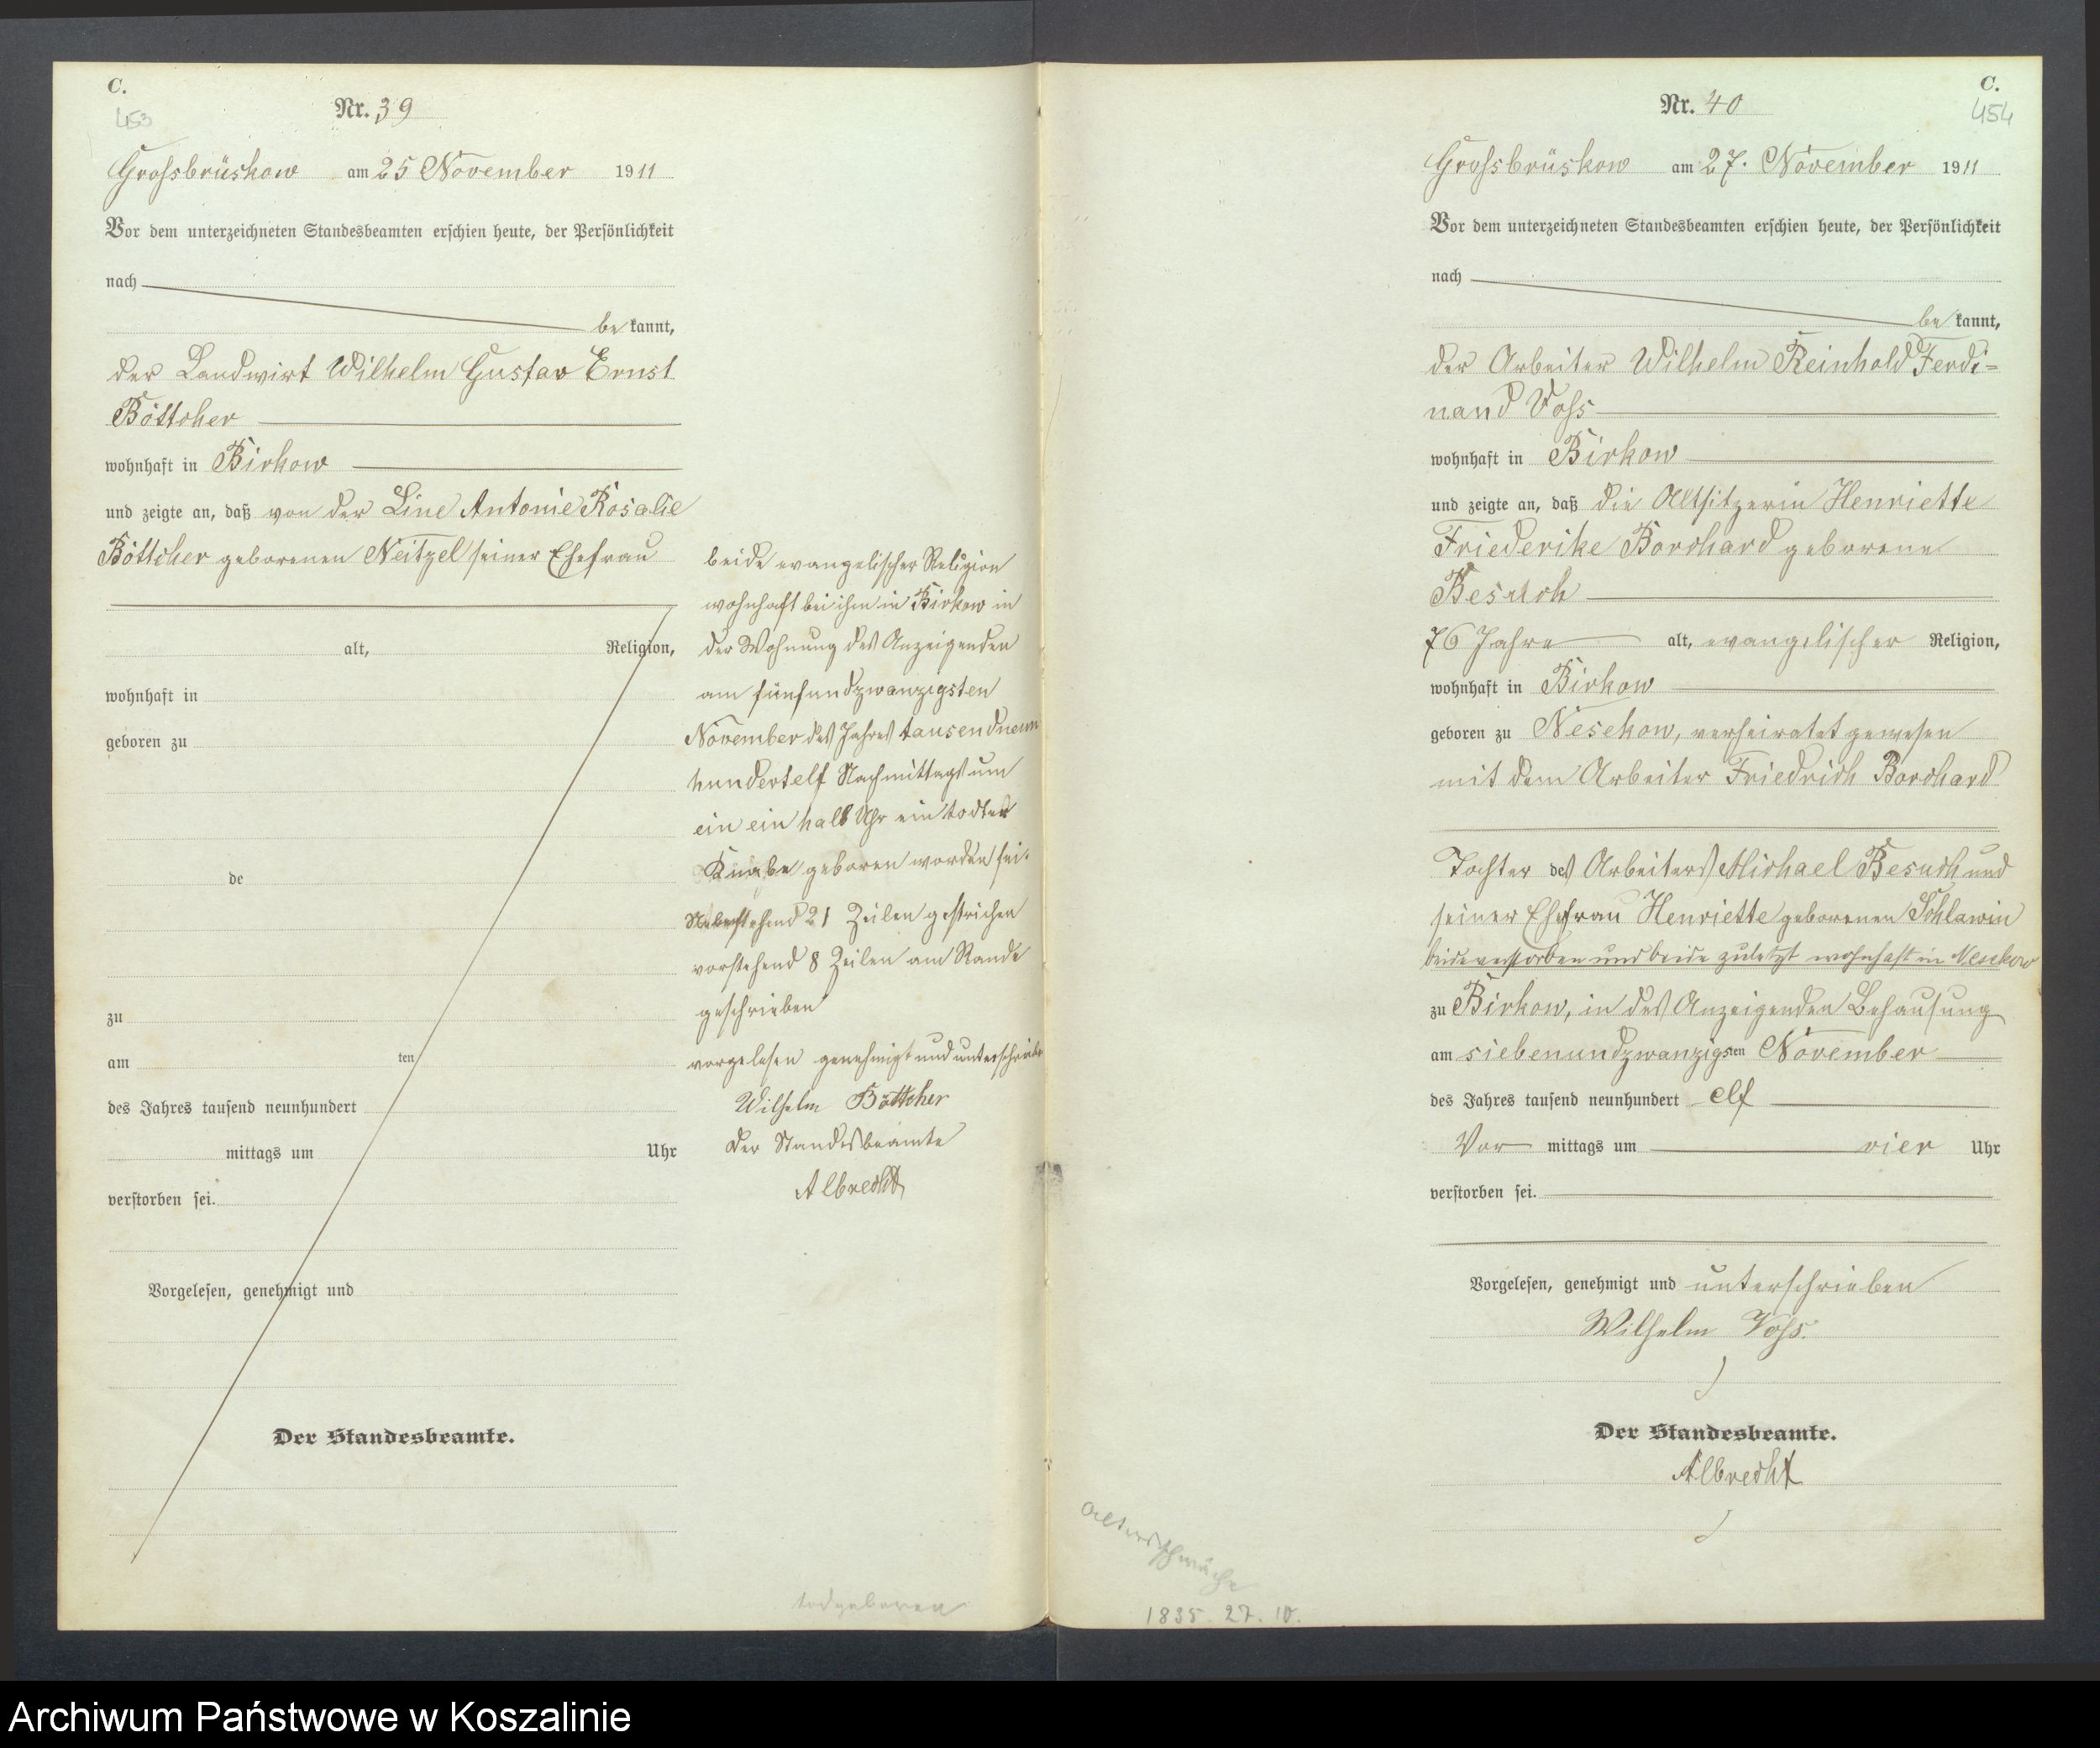 C.
453
Nr. 39
Grossbrüskow am 25 November 1911
Vor dem unterzeichneten Standesbeamten erschien heute, der Persönlichkeit
nach
be kannt,
der Landwirt Wilhelm Gustav Ernst
Böttcher
wohnhaft in Birkow
und zeigte an, daß von der Line Antonie Rosalie
Böttcher geborenen Neitzel seiner Ehefrau
alt, Religion,
wohnhaft in
geboren zu
de
zu
am ten
des Jahres tausend neunhundert
mittags um Uhr
verstorben sei.
Vorgelesen, genehmigt und
Der Standesbeamte.
beide evangelischer Religion
wohnhaft bei ihm in Birkow in
der Wohnung des Anzeigenden
am fünfundzwanzigsten
November des Jahres tausendneun
hundertelf Nachmittags um
ein ein halb Uhr ein todter
Knabe geboren worden sei.
Nebenstehend 21 Zeilen gestrichen
vorstehend 8 Zeilen am Rande
geschrieben
vorgelesen genehmigt und unterschrieben
Wilhelm Böttcher
Der Standesbeamte
Albrecht
todgeboren
C.
454
Nr. 40
Grossbrüskow am 27. November 1911
Vor dem unterzeichneten Standesbeamten erschien heute, der Persönlichkeit
nach
be kannt,
der Arbeiter Wilhelm Reinhold Ferdi-
nand Voss
wohnhaft in Birkow
und zeigte an, daß die Altsitzerin Henriette
Friederike Borchard geborene
Besuch
76 Jahre alt, evangelischer Religion,
wohnhaft in Birkow
geboren zu Nesekow, verheiratet gewesen
mit dem Arbeiter Friedrich Borchard
Tochter des Arbeiters Michael Besuch und
seiner Ehefrau Henriette geborenen Schlawin
beide verstorben und beide zuletzt wohnhaft in Nesekow
zu Birkow, in des Anzeigenden Behausung
am siebenundzwanzigsten November
des Jahres tausend neunhundert elf
Vor mittags um vier Uhr
verstorben sei.
Vorgelesen, genehmigt und unterschrieben
Wilhelm Voss.
Der Standesbeamte.
Albrecht
Altersschwäche
1835. 27. 10.
Archiwum Państwowe w Koszalinie